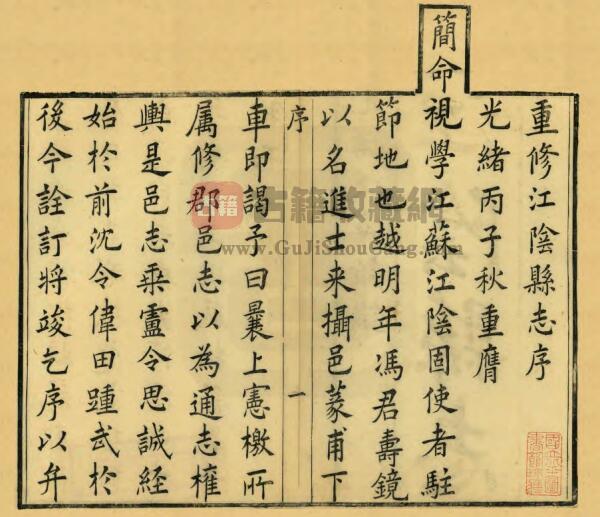 重修江陰縣志序
光緒丙子秋重膺
簡命視學江蘇江陰固使者駐
節地也越明年馮君壽鏡
以名進士来攝邑篆甫下
序
一
車即謁予曰曩上憲檄所
属修郡邑志以為通志榷
輿是邑志乘盧令思誠經
始於前沈令偉田踵武於
後今詮訂將竣乞序以弁
古籍
古籍收藏網
www.GuJiShouCang.com